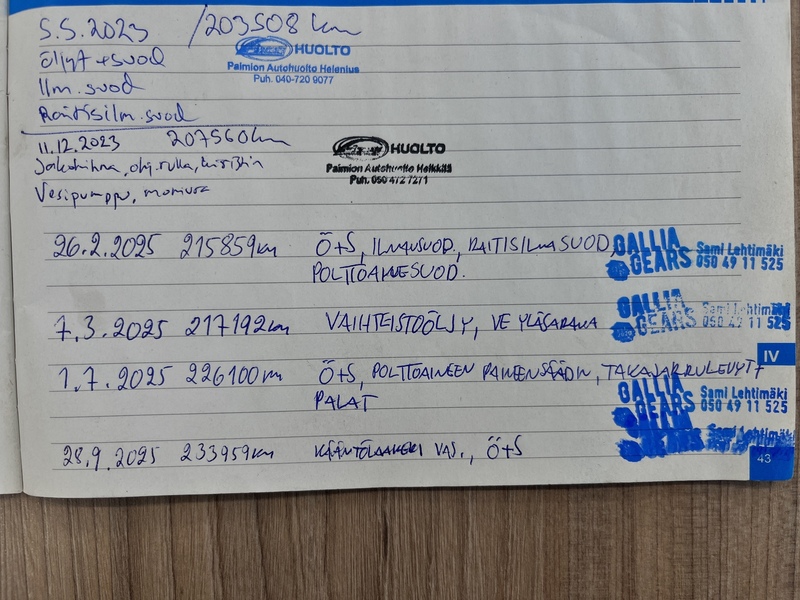 5.5.2023 /203508 km
öljyt+suod
Ilm.suod
Raitisilm.suod
HUOLTO
Paimion Autohuolto Helenius
Puh. 040-720 9077
11.12.2023 207560km
Jakohihna, ohj.rulla, kiristin
Vesipumppu,
HUOLTO
Paimion Autohuolto Heikkilä
Puh. 050 472 7271
26.2.2025 215859km Ö+S, ILMANSUOD., RAITISILMASUOD,
POLTTOAINESUOD.
GALLIA GEARS Sami Lehtimäki
050 49 11 525
7.3.2025 217192km VAIHTEISTOÖLJY, VE YLÄSARANA
GALLIA GEARS Sami Lehtimäki
050 49 11 525
IV
1.7.2025 226100km Ö+S, POLTTOAINEEN PAINEENSÄÄDIN, TAKAJARRULEVYT+
PALAT
GALLIA GEARS Sami Lehtimäki
050 49 11 525
28.9.2025 233959km KÄÄNTÖLAAKERI VAS., Ö+S
GEARS Sami Lehtimäki
43